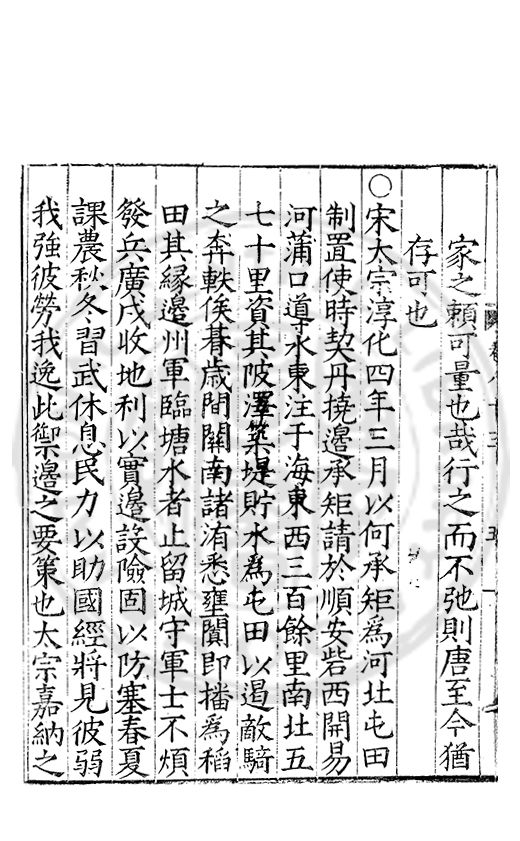 家之賴可量也哉行之而不弛則唐至今猶
存可也
○宋太宗淳化四年三月以何承矩為河北屯田
制置使時契丹撓邊承矩請於順安砦西開易
河蒲口導水東注于海東西三百餘里南北五
七十里資其陂澤築堤貯水為屯田以遏敵騎
之奔軼俟朞歲間關南諸洧悉壅闐即播為稻
田其縁邊州軍臨塘水者止留城守軍士不煩
發兵廣戍收地利以實邊設險固以防塞春夏
課農秋冬習武休息民力以助國經將見彼弱
我強彼勞我逸此禦邊之要策也太宗嘉納之